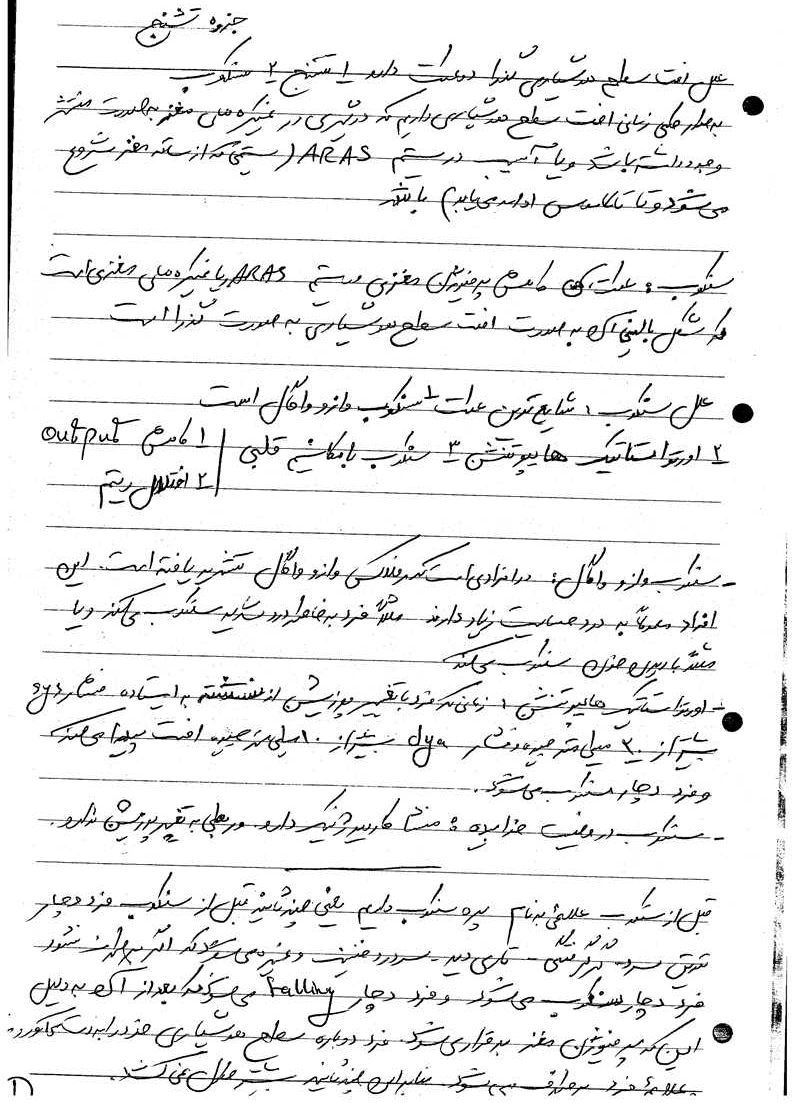 جزوه تشنج
علل افت سطح هوشیاری گذرا دو علت دارد ۱ تشنج ۲ سنکوپ
به طور کلی زمانی افت سطح هوشیاری داریم که درگیری در نیمکره های مغز به صورت منتشر
وجود داشته باشد و یا آسیب در سیستم ARAS (سیستمی که از ساقه مغز شروع
می شود و تا تالاموس ادامه می یابد) باشد
سنکوپ : علت آن کاهش پرفیوژن مغزی در سیستم ARAS یا نیمکره های مغزی است
که شکل بالینی آن به صورت افت سطح هوشیاری به صورت گذرا است
علل سنکوپ : شایع ترین علت ۱ سنکوپ وازوواگال است
۲ اورتواستاتیک هایپوتنشن ۳ سنکوپ با مکانیسم قلبی ۱ کاهش output
۲ اختلال ریتم
- سنکوپ وازوواگال : در افرادی است که رفلکس وازوواگال تشدید یافته است. این
افراد معمولاً به درد حساسیت زیاد دارند مثلاً فرد به خاطر درد شدید سنکوپ می کند و یا
مثلاً با دیدن خون سنکوپ می کند
- اورتواستاتیک هایپوتنشن : زمانی که فرد با تغییر پوزیشن از نشسته به ایستاده فشار sys
بیش از ۲۰ میلی متر جیوه و فشار dya بیش از ۱۰ میلی متر جیوه افت پیدا می کند
و فرد دچار سنکوپ می شود.
- سنکوپ در وضعیت خوابیده : منشا کاردیوژنیک دارد. و ربطی به تغییر پوزیشن ندارد.
قبل از سنکوپ علائمی به نام پره سنکوپ داریم یعنی چند ثانیه قبل از سنکوپ فرد دچار
تعریق سرد - - تاری دید - سردرد خفیف و غیره می شود که اگر درمان نشود
فرد دچار سنکوپ می شود و فرد دچار Falling می شود که بعد از آن به دلیل
این که پرفیوژن مغز برقرار می شود فرد دوباره سطح هوشیاری خود را به دست می آورد و
علائم فرد برطرف می شود بنابراین چند ثانیه بیشتر طول نمی کشد.
۱